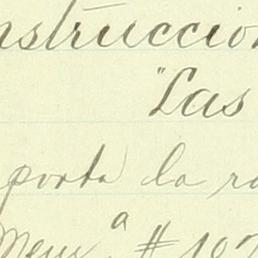 nstruccion
"Las
porta la ra
Mem.ª # 107